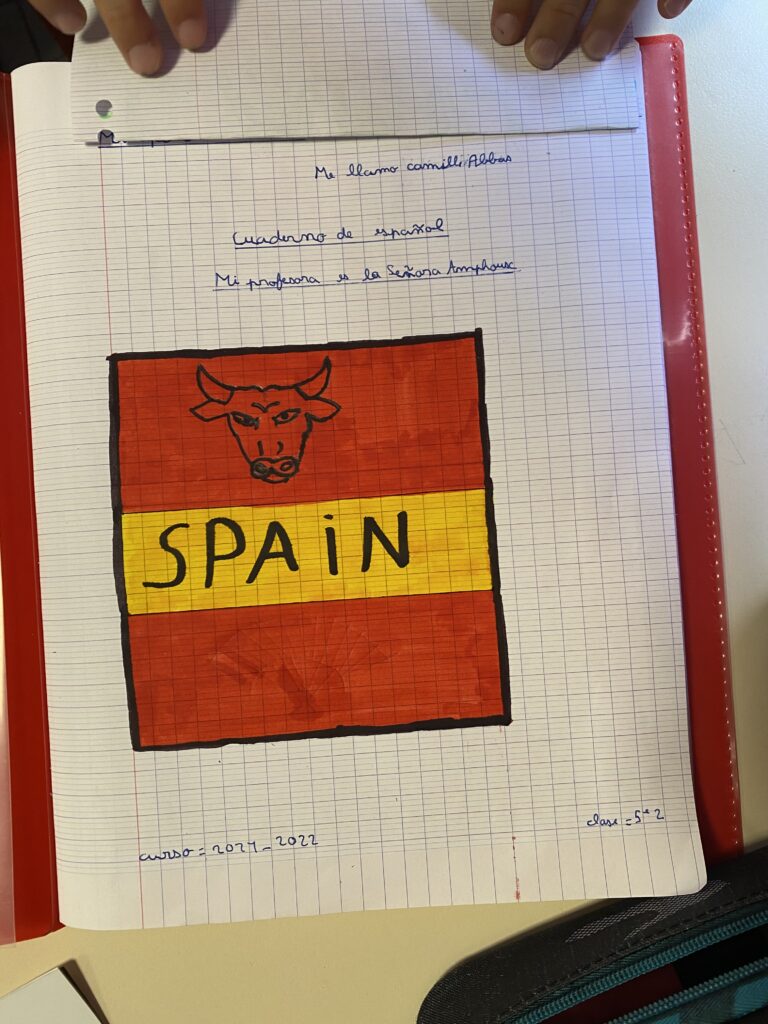 Me llamo camilli Abbas
Cuaderno de español
Mi profesora es la Señora Amphoux
SPAiN
curso = 2021-2022
clase = 5è 2